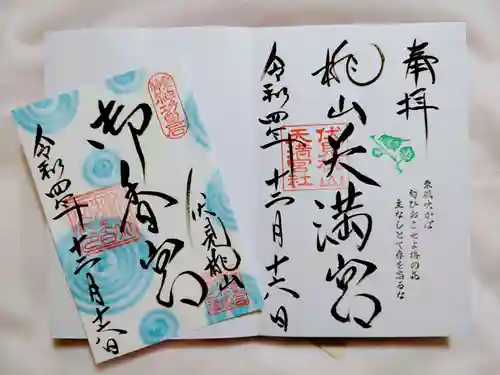 奉拝
桃山天満宮
令和四年十二月十六日
東風吹かば
匂ひおこせよ梅の花
主なしとて春を忘るな
天満宮社
伏見桃山
御香宮
令和四年十二月十六日